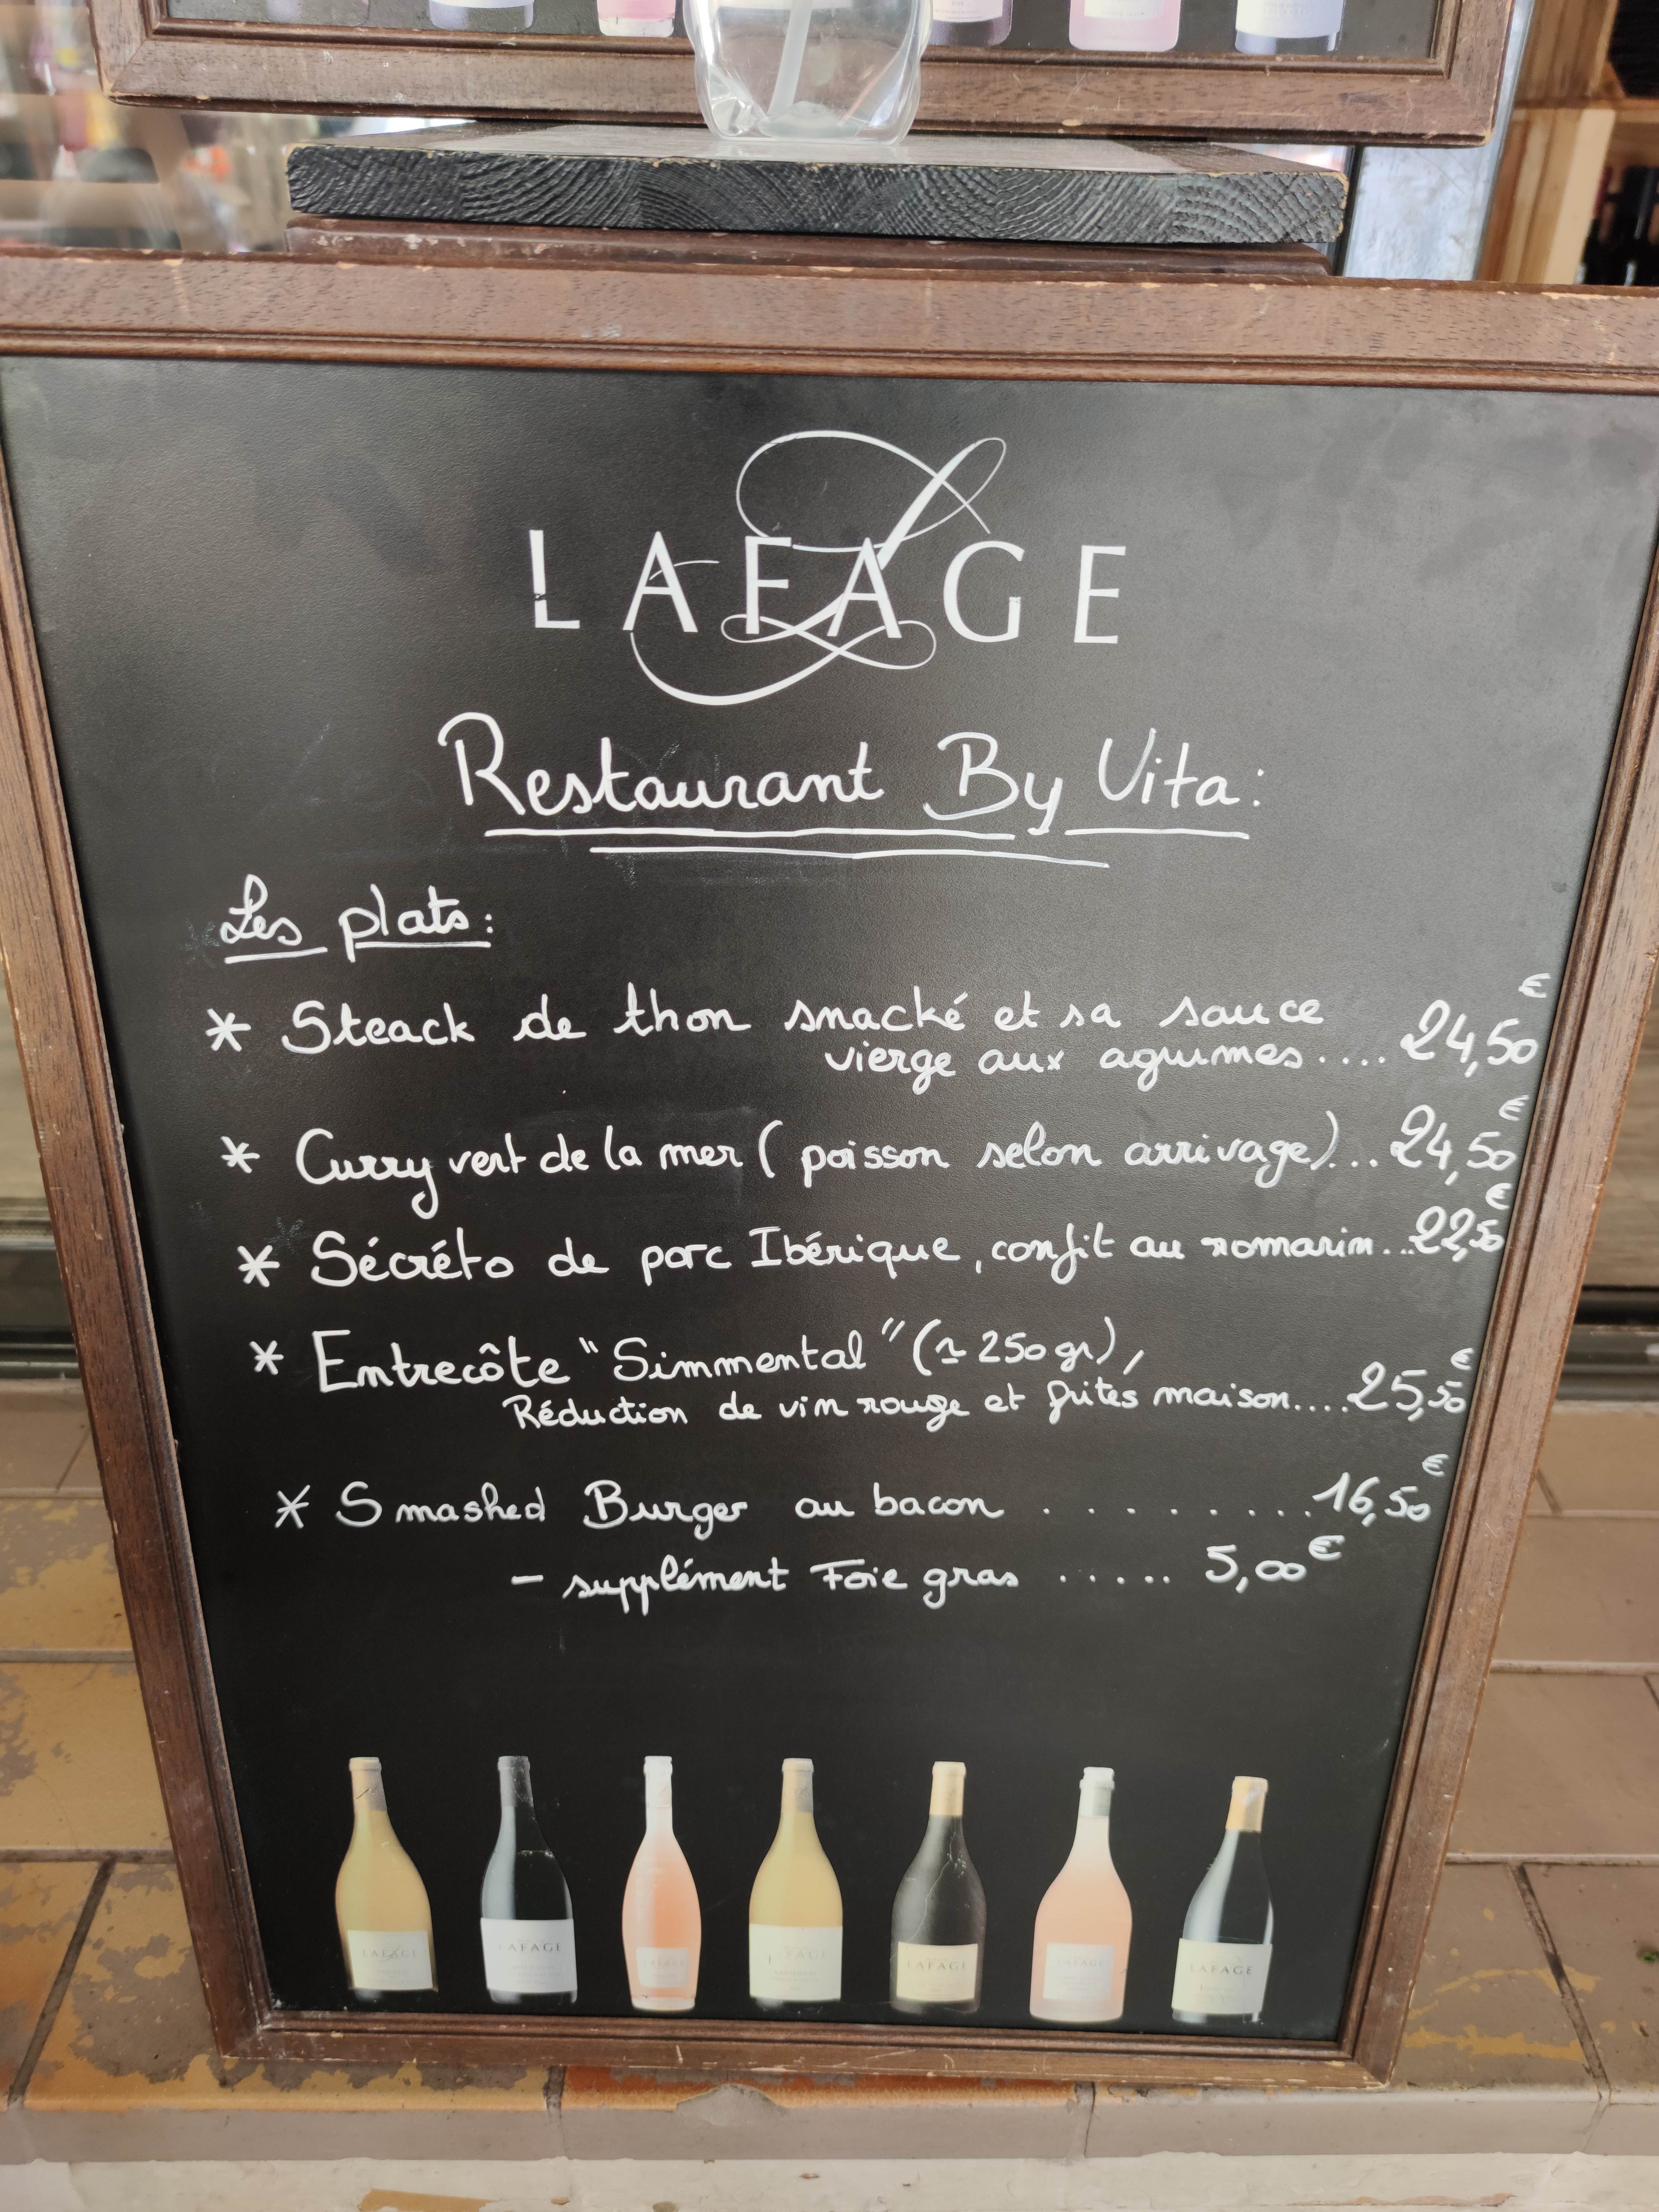 LAFAGE
Restaurant By Vita:
Les plats:
* Steack de thon snacké et sa sauce
vierge aux agrumes.... 24,50€
* Curry vert de la mer (poisson selon arrivage)... 24,50€
* Sécréto de porc Ibérique, confit au romarin... 22,50€
* Entrecôte "Simmental" (≃ 250gr),
Réduction de vin rouge et frites maison.... 25,50€
* Smashed Burger au bacon ......... 16,50€
- supplément Foie gras ..... 5,00€
LAFAGE
LAFAGE
LAFAGE
LAFAGE
LAFAGE
LAFAGE
LAFAGE